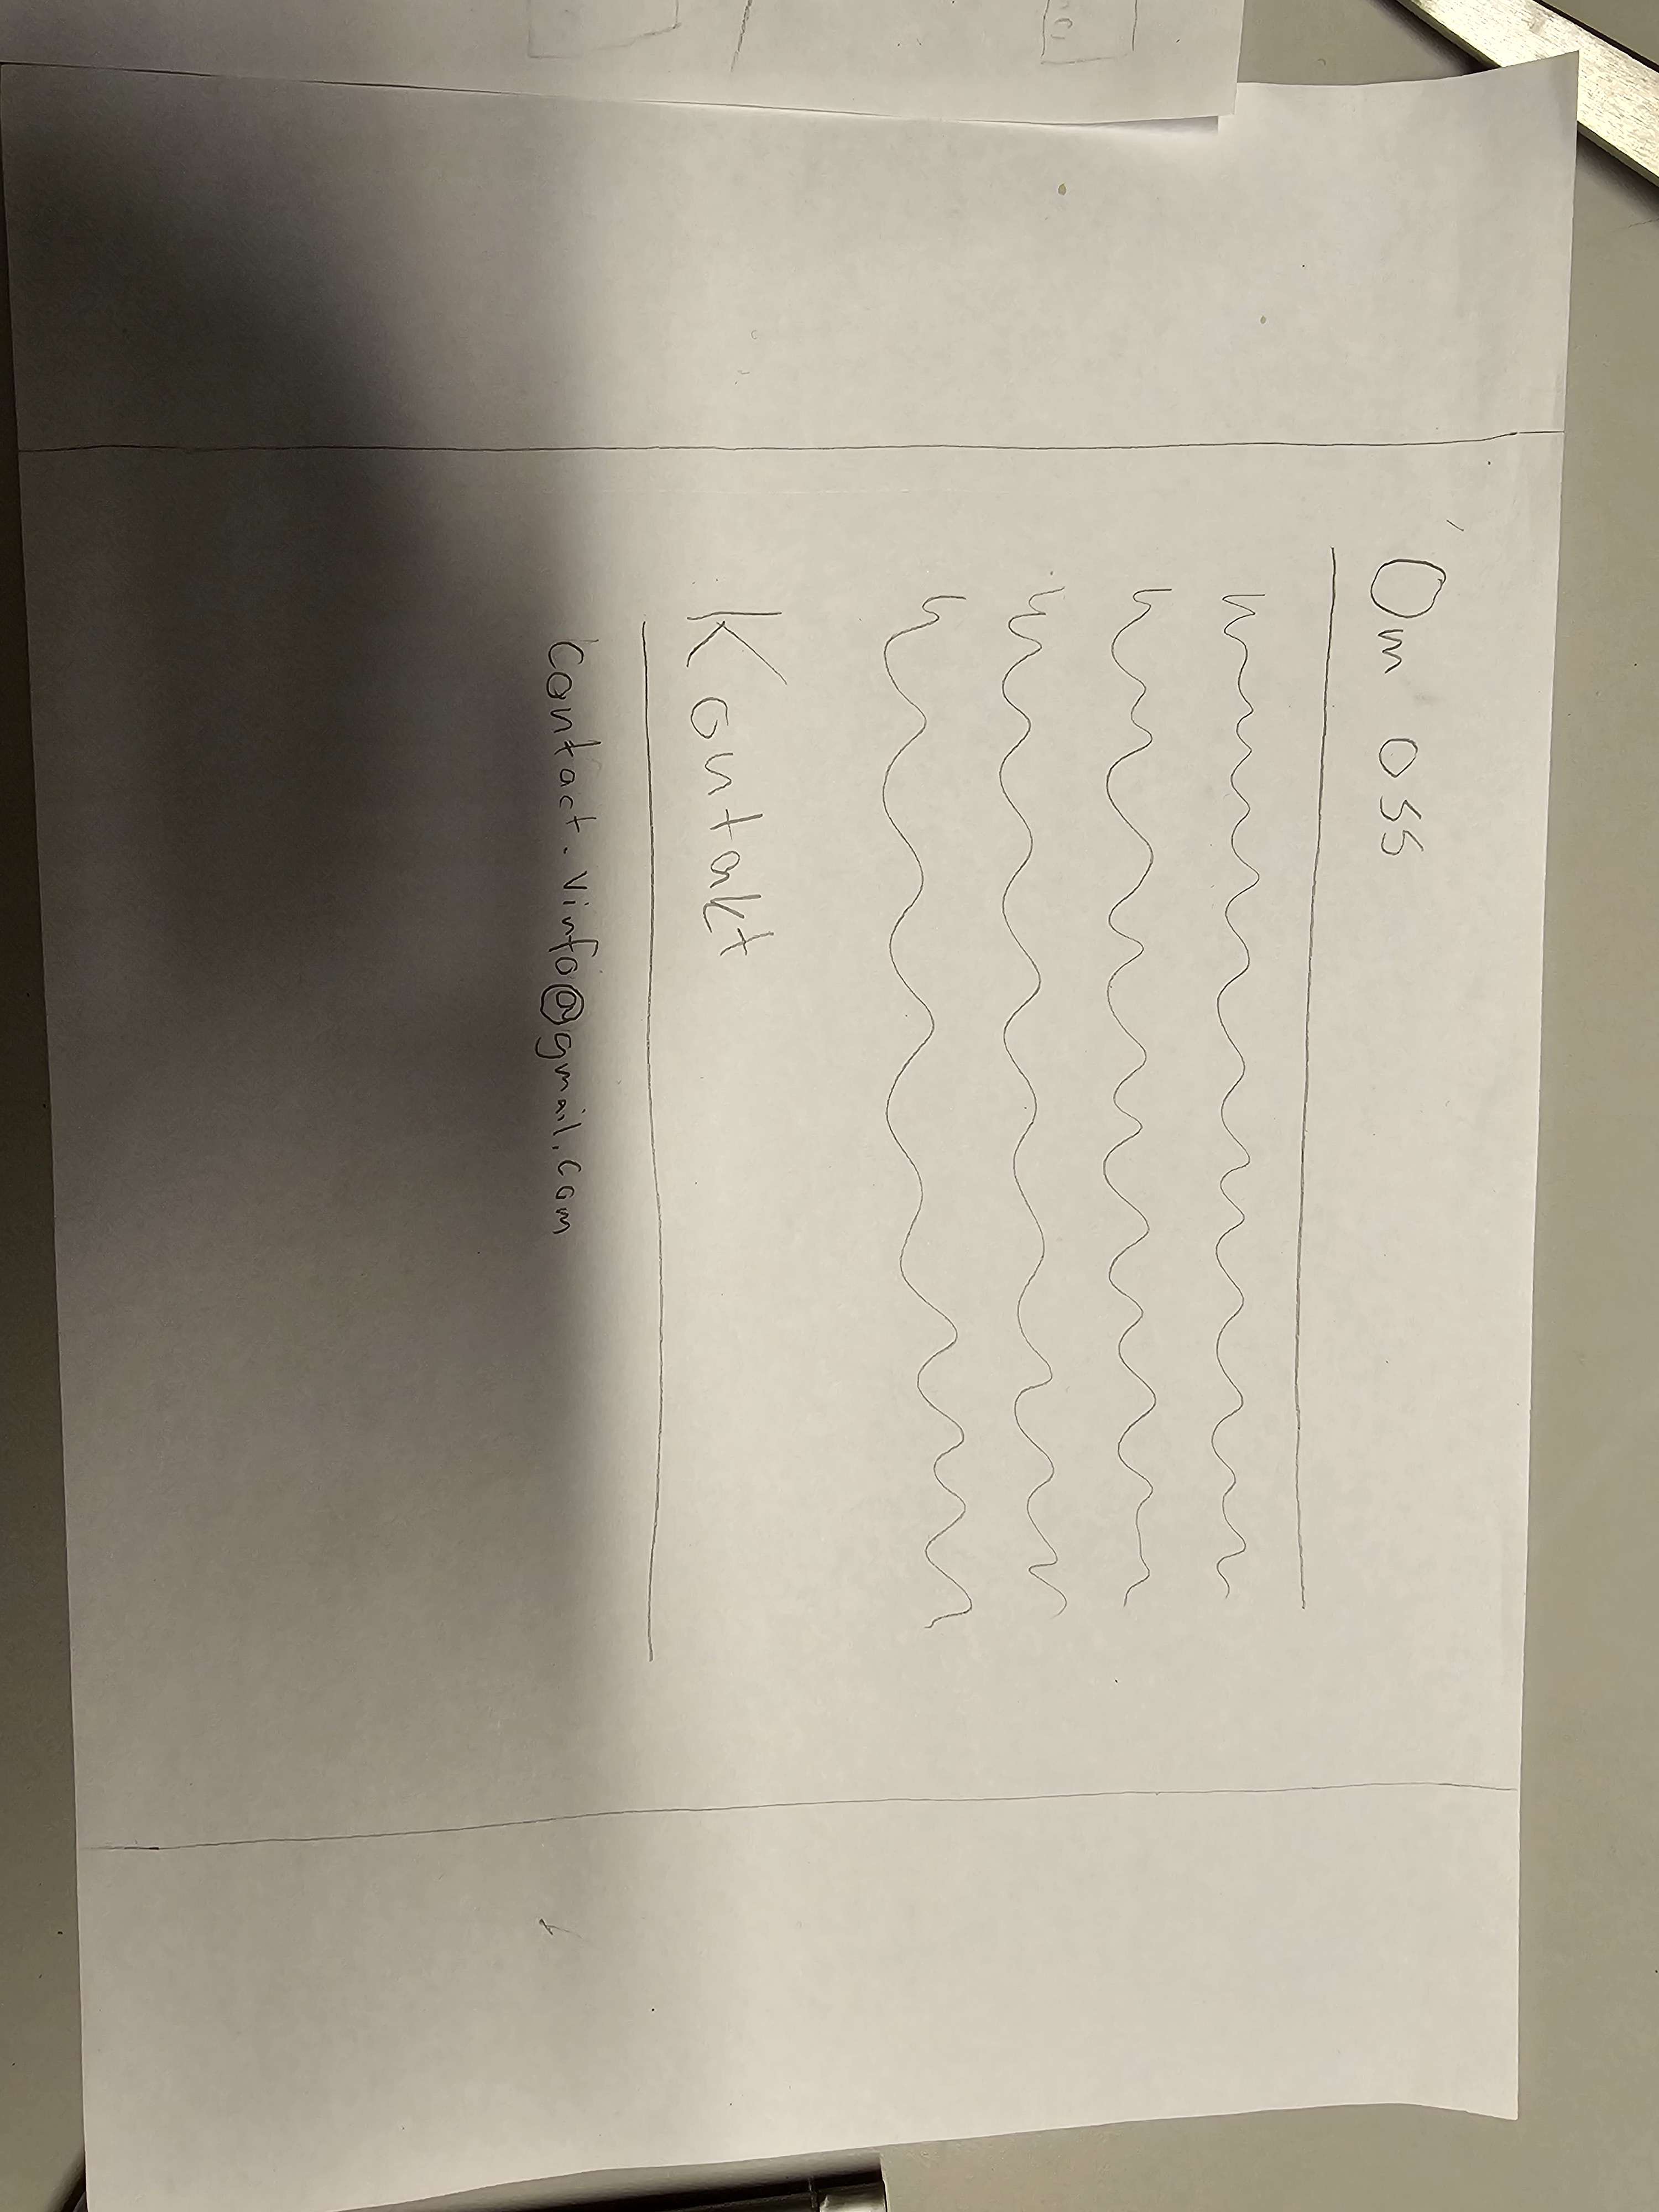 Om oss
Kontakt
contact.vinfo@gmail.com